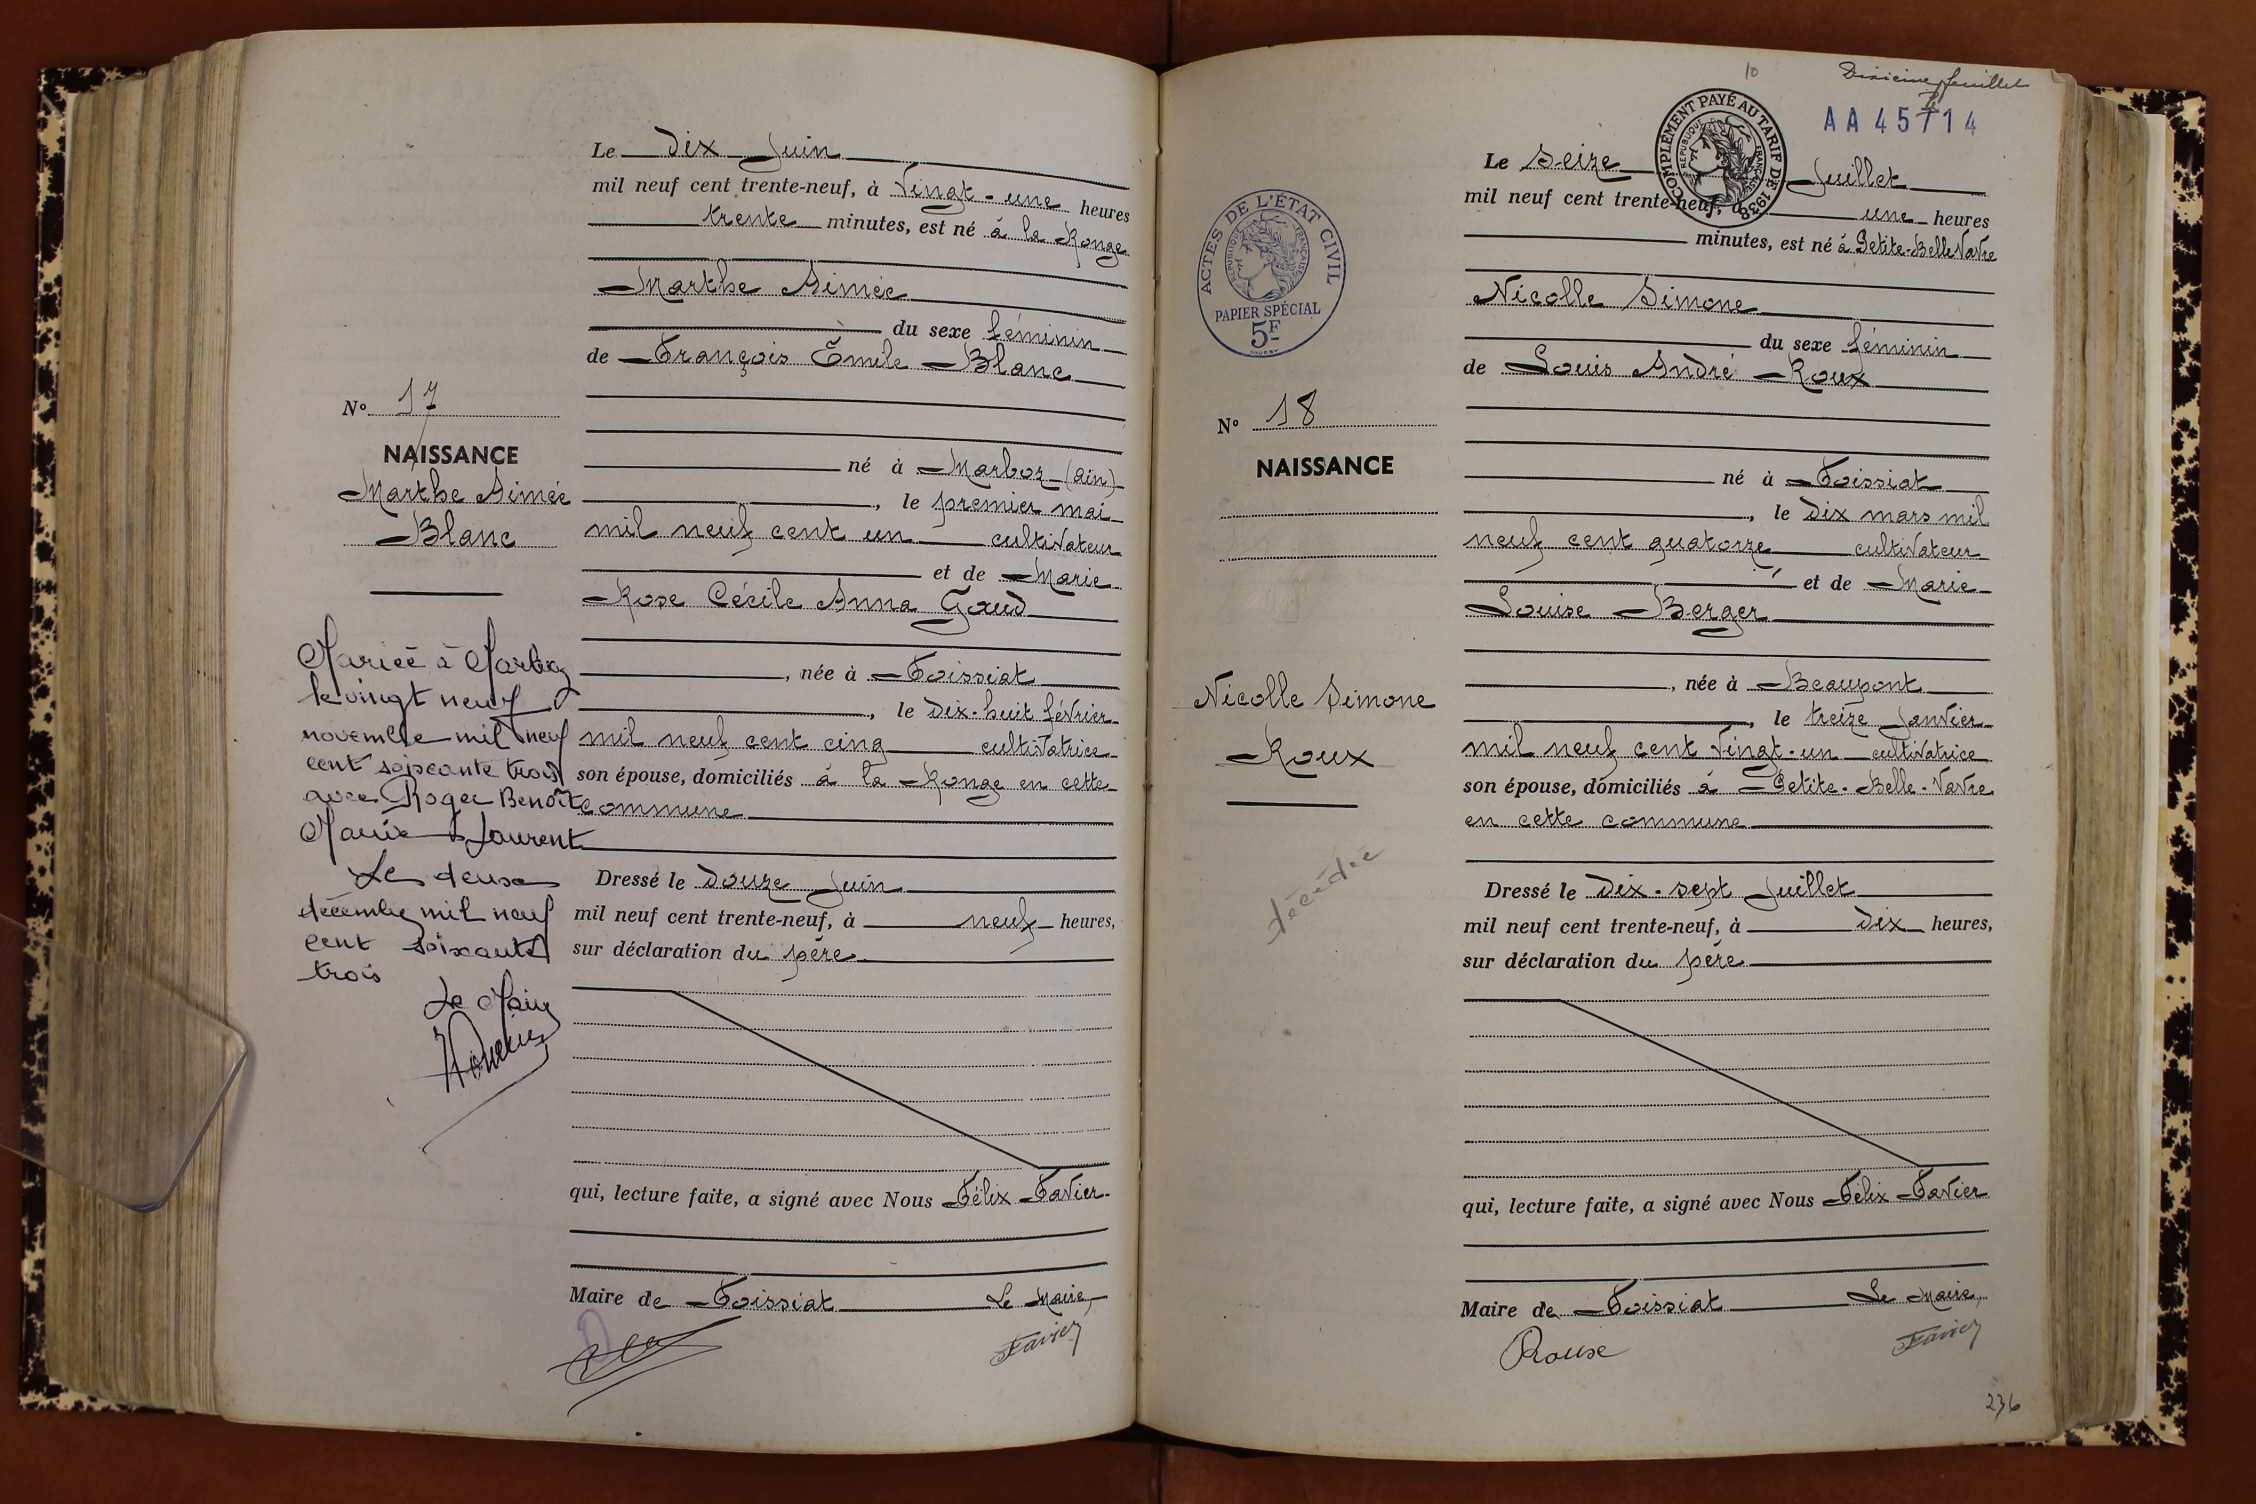 Le Dix Juin
mil neuf cent trente-neuf, à Vingt-une heures
trente minutes, est né à la Ronge
Marthe Aimée
du sexe féminin
de François Émile Blanc
né à Marboz (Ain)
, le premier mai
mil neuf cent un cultivateur
et de Marie
Rose Cécile Anna Goud
, née à Foissiat
, le Dix-huit février
mil neuf cent cinq cultivatrice
son épouse, domiciliés à la Ronge en cette
commune
Dressé le Douze Juin
mil neuf cent trente-neuf, à neuf heures,
sur déclaration du père
qui, lecture faite, a signé avec Nous Félix Favier
Maire de Foissiat Le Maire,
Favier
No 17
NAISSANCE
Marthe Aimée
Blanc
Mariée à Marboz
le vingt neuf
novembre mil neuf
cent soixante trois
avec Roger Benoît
Marie Laurent
Le deux
décembre mil neuf
cent soixante
trois
Le Maire
10
Dixième feuillet
AA 45714
COMPLÉMENT PAYÉ AU TARIF DE 1938
RÉPUBLIQUE FRANÇAISE
Le Seize Juillet
mil neuf cent trente-neuf, à une heures
minutes, est né à Petite-Belle Vavre
Nicolle Simone
du sexe féminin
de Louis André Roux
né à Foissiat
, le Dix mars mil
neuf cent quatorze cultivateur
et de Marie
Louise Berger
, née à Beaupont
, le treize Janvier
mil neuf cent Vingt-un cultivatrice
son épouse, domiciliés à Petite-Belle-Vavre
en cette commune
Dressé le Dix-sept Juillet
mil neuf cent trente-neuf, à Dix heures,
sur déclaration du père
qui, lecture faite, a signé avec Nous Félix Favier
Maire de Foissiat Le Maire,
Roux
Favier
ACTES DE L'ÉTAT CIVIL
RÉPUBLIQUE FRANÇAISE
PAPIER SPÉCIAL
5F
No 18
NAISSANCE
Nicolle Simone
Roux
décédée
236